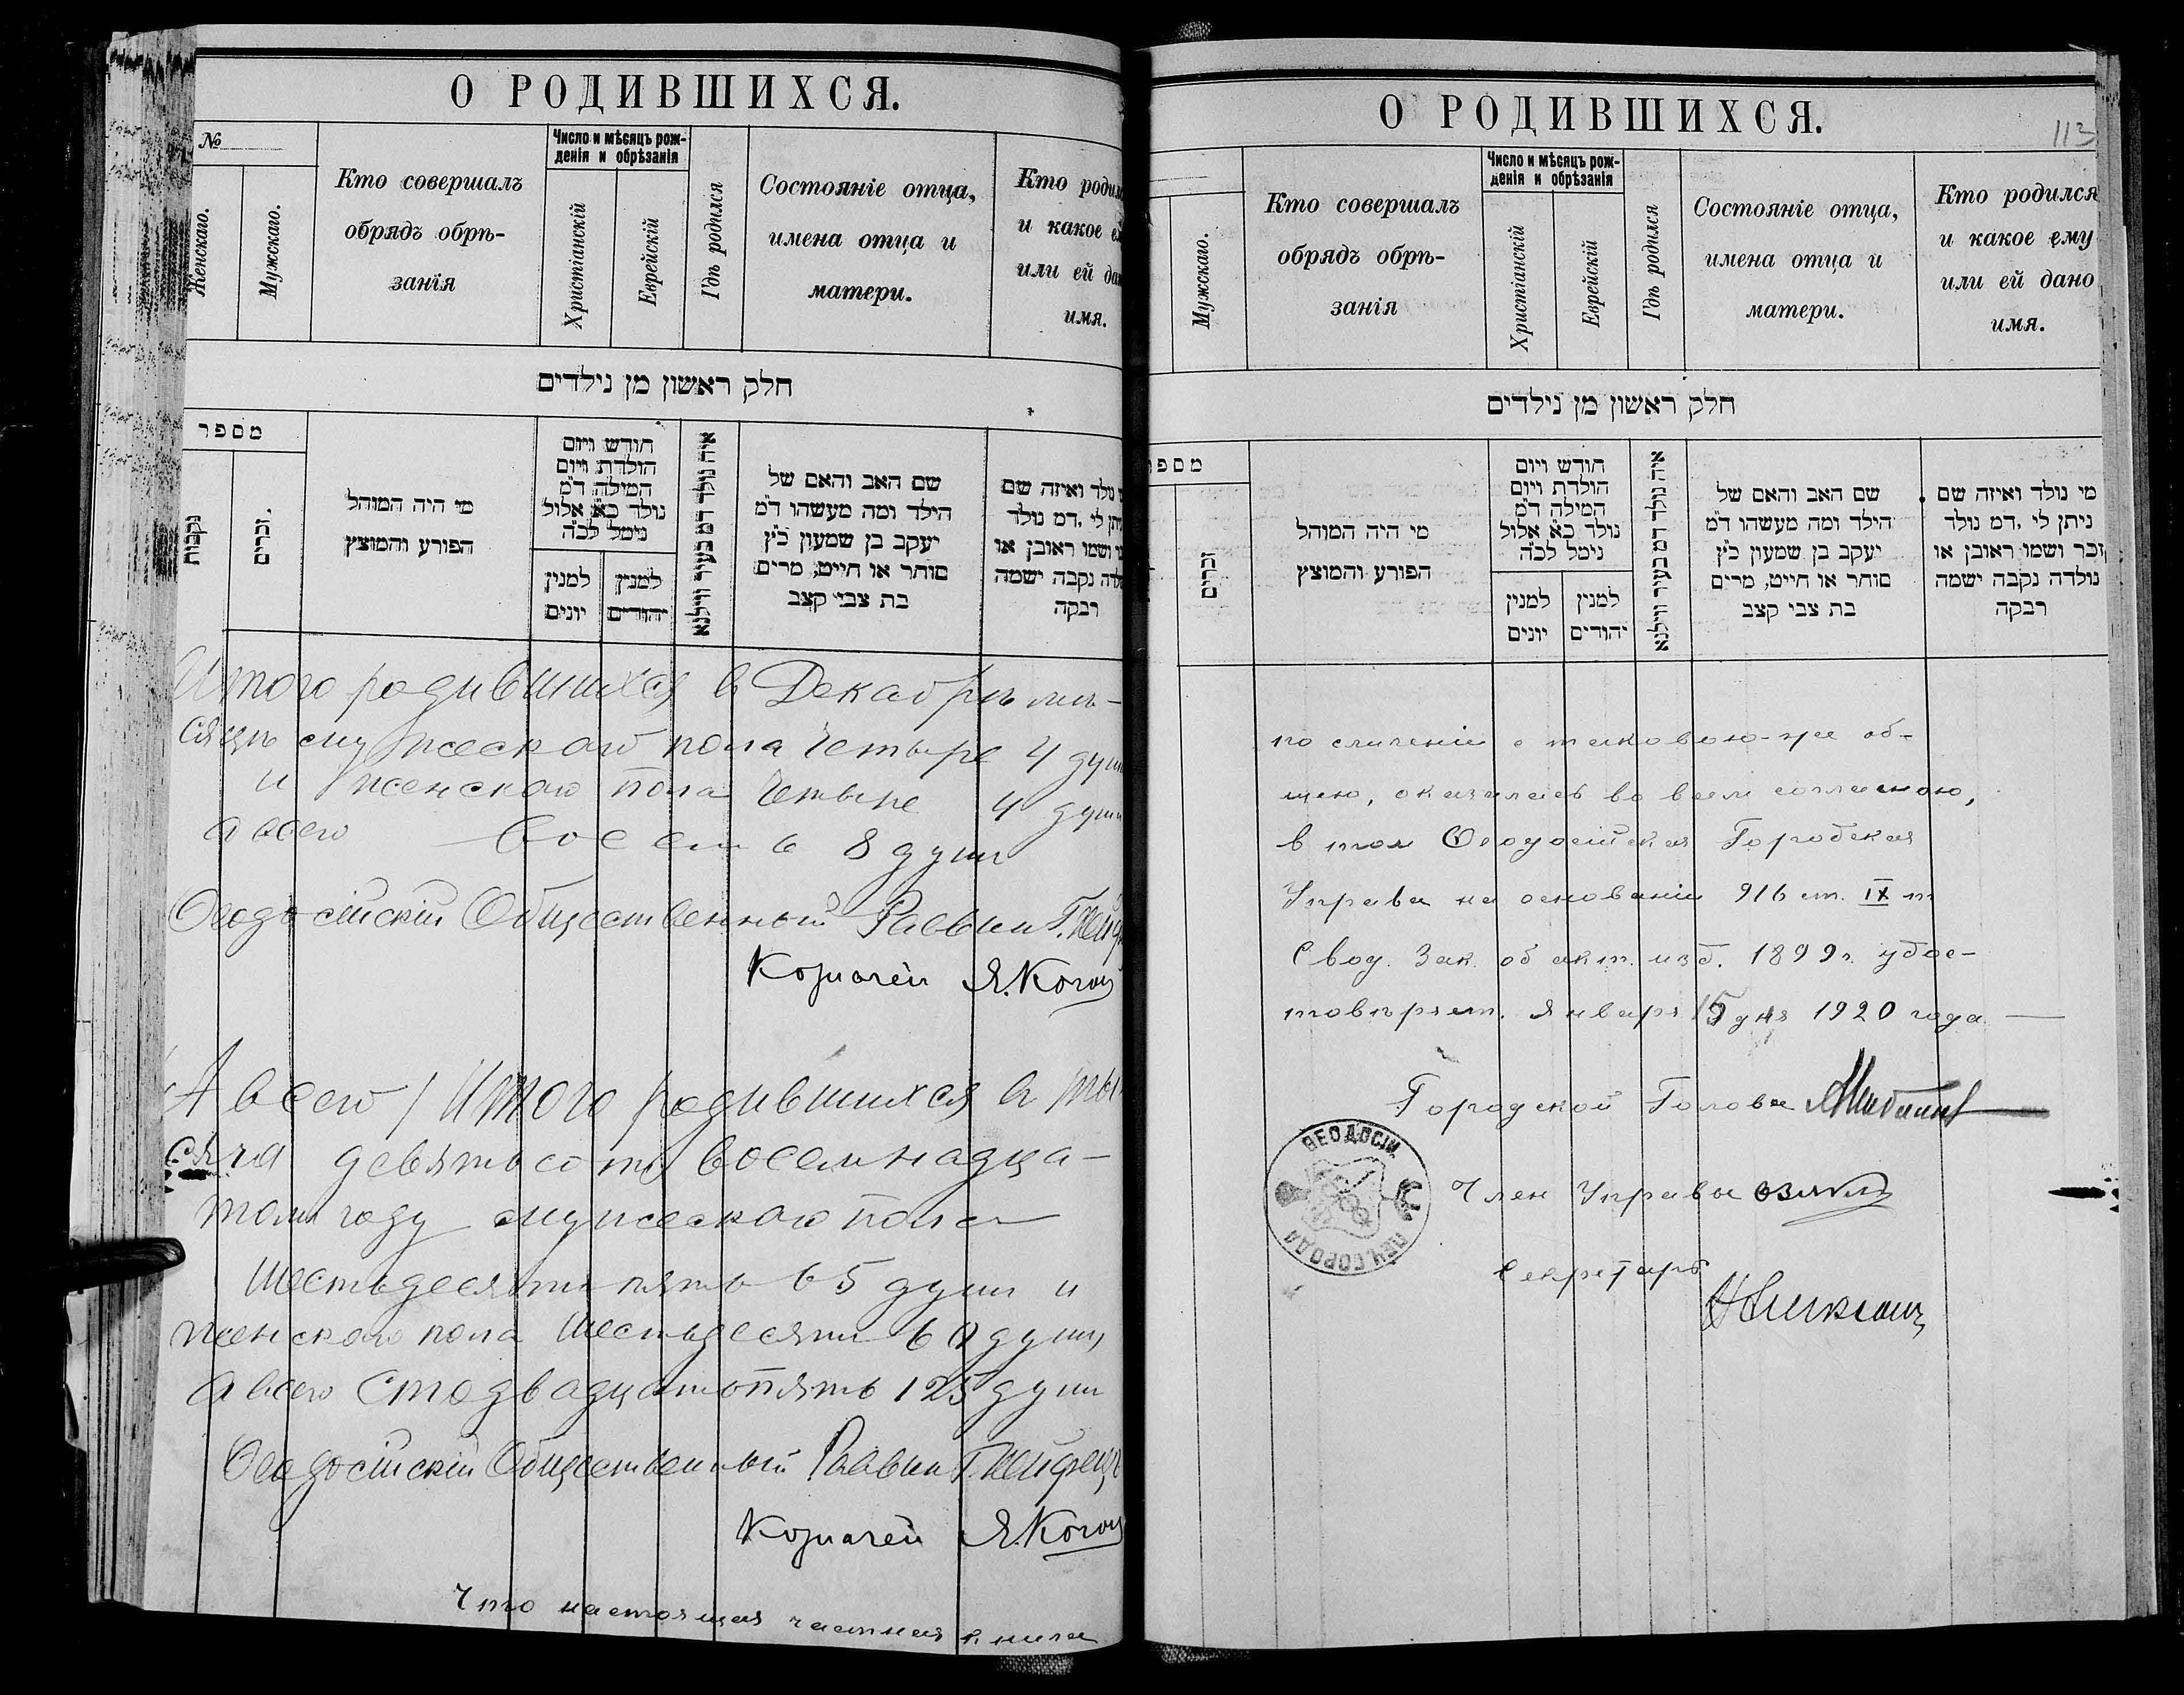 О РОДИВШИХСЯ.
№
Женскаго.
Мужскаго.
Кто совершалъ
обрядъ обрѣ-
занія
Число и мѣсяцъ рож-
денія и обрѣзанія
Христіанскій
Еврейскій
Гдѣ родился
Состояніе отца,
имена отца и
матери.
Кто родил
и какое е
или ей да
имя.
חלק ראשון מן נילדים
מספר
נקבות
זכרים.
מי היה המוהל
הפורע והמוצץ
חודש ויום
הולדת ויום
המילה ד"מ
נולד כ"א אלול
נימל לכ"ה
למנין
יונים
למנין
יהודים
איה נולד דמ בעיר ווילנא
שם האב והאם של
הילד ומה מעשהו ד"מ
יעקב בן שמעון כ"ץ
סוחר או חייט, מרים
בת צבי קצב
נולד ואיזה שם
יתן לי, דמ נולד
ושמו ראובן או
נקבה ישמה
רבקה
Итого родившихся в Декабрѣ мѣ-
сяцѣ мужескаго пола Четыре 4 душ
и женскаго пола Четыре 4 душ
а всего восемь 8 душ
Ѳеодосійскій Общественный Раввин Г.
Казначей Я. Коган
А всего / Итого родившихся в ты-
сяча девятьсот восемнадца-
том году мужескаго пола
Шестьдесят пять 65 душ и
женскаго пола Шестьдесят 60 душ,
а всего Сто двадцать пять 125 душ
Ѳеодосійскій Общественный Раввин Г.
Казначей Я. Коган
Что настоящая частная книга
О РОДИВШИХСЯ.
113
Мужскаго.
Кто совершалъ
обрядъ обрѣ-
занія
Число и мѣсяцъ рож-
денія и обрѣзанія
Христіанскій
Еврейскій
Гдѣ родился
Состояніе отца,
имена отца и
матери.
Кто родился
и какое ему
или ей дано
имя.
חלק ראשון מן נילדים
מספ
זכרים
מי היה המוהל
הפורע והמוצץ
חודש ויום
הולדת ויום
המילה ד"מ
נולד כ"א אלול
נימל לכ"ה
למנין
יונים
למנין
יהודים
איה נולד דמ בעיר ווילנא
שם האב והאם של
הילד ומה מעשהו ד"מ
יעקב בן שמעון כ"ץ
סוחר או חייט, מרים
בת צבי קצב
מי נולד ואיזה שם
ניתן לי, דמ נולד
זכר ושמו ראובן או
נולדה נקבה ישמה
רבקה
по сличеніи с таковою-же об-
щею, оказалась во всем согласною,
в том Ѳеодосійская Городская
Управа на основаніи 916 ст. IX т
Свод. Зак. об акт. изд. 1899 г. удос-
товѣряет. Января 15 дня 1920 года
Городской Голова
Член Управы
Секретарь
ѲЕОДОСІИ
ПЕЧ. ГОРОДА